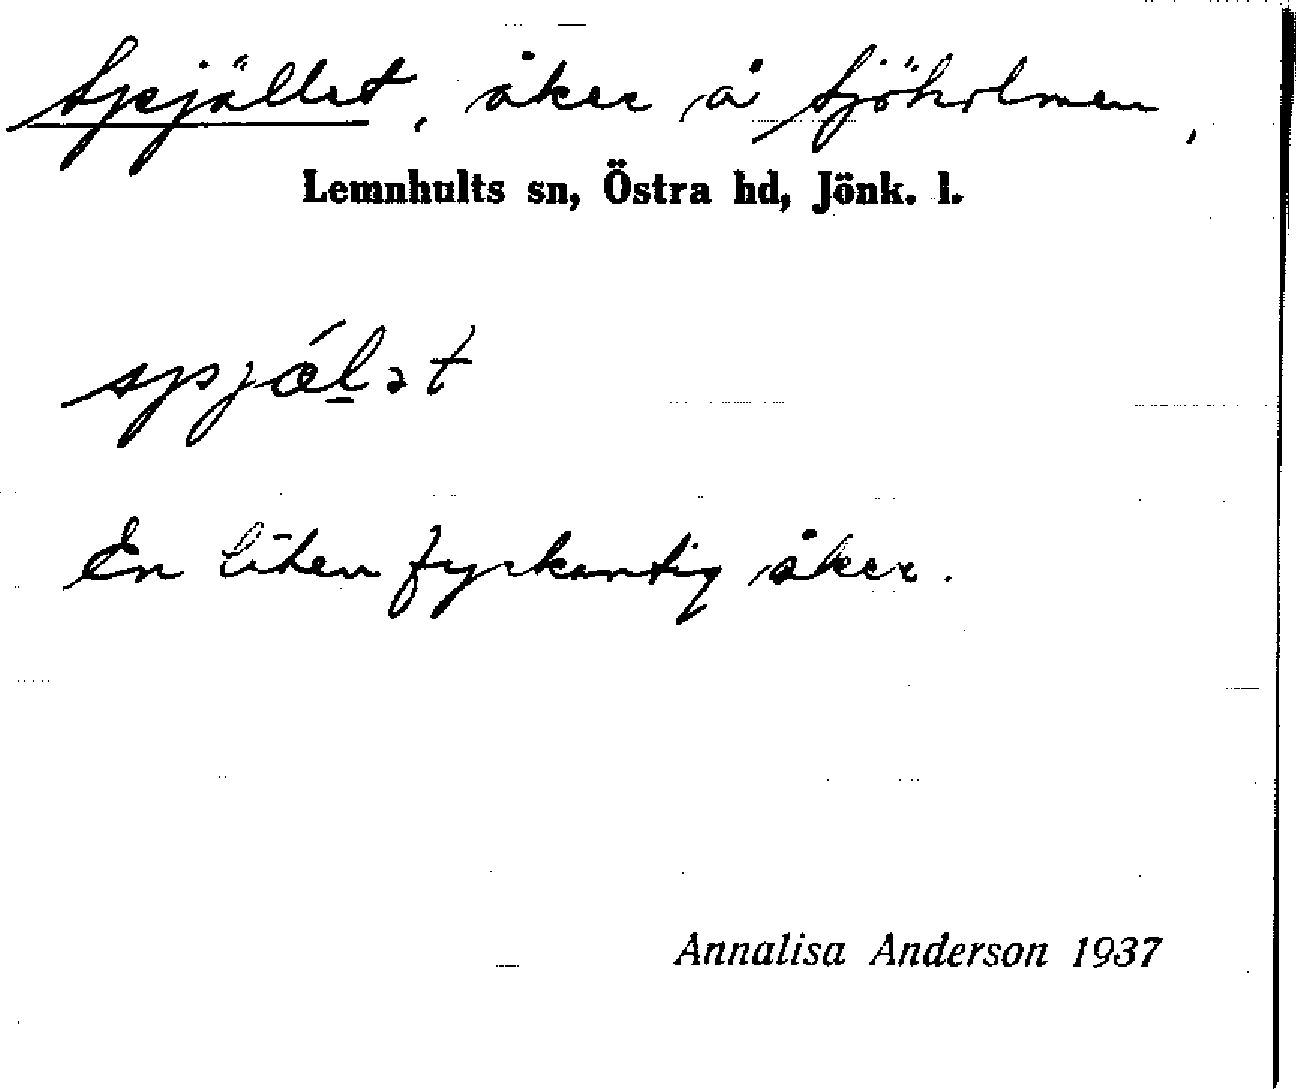 Spjället, åker å Sjöholmen,
Lemnhults sn, Östra hd, Jönk. l.
spjǽl̲ət
En liten fyrkantig åker.
Annalisa Anderson 1937